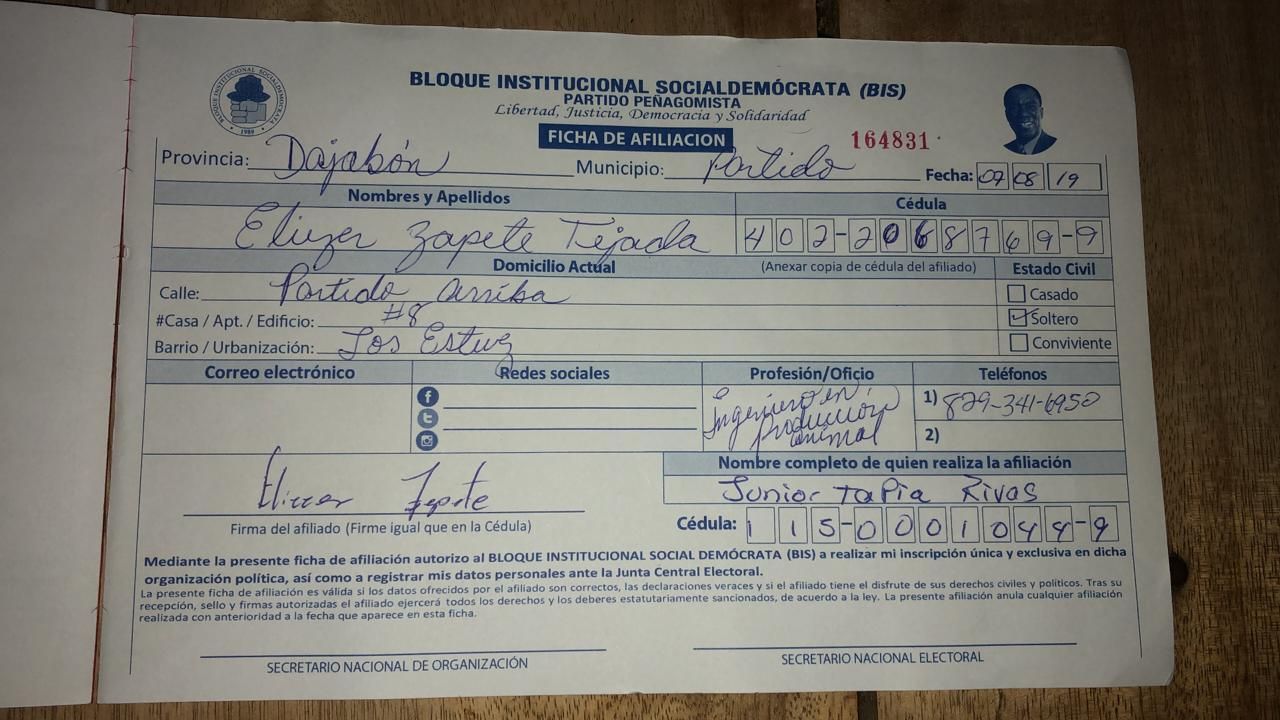 BLOQUE INSTITUCIONAL SOCIALDEMÓCRATA
1989
BLOQUE INSTITUCIONAL SOCIALDEMÓCRATA (BIS)
PARTIDO PEÑAGOMISTA
Libertad, Justicia, Democracia y Solidaridad
FICHA DE AFILIACION
164831
Provincia: Dajabón Municipio: Partido Fecha: 07 08 19
Nombres y Apellidos Cédula
Eliezer Zapete Tejada 402-2068769-9
Domicilio Actual (Anexar copia de cédula del afiliado) Estado Civil
Calle: Partido arriba Casado
#Casa / Apt. / Edificio: #8 Soltero
Barrio / Urbanización: Los Conviviente
Correo electrónico Redes sociales Profesión/Oficio Teléfonos
Ingeniero en 1) 829-341-6950
Producción
animal 2)
Nombre completo de quien realiza la afiliación
Eliezer Zapete Junior Tapia Rivas
Firma del afiliado (Firme igual que en la Cédula) Cédula: 115-0001044-9
Mediante la presente ficha de afiliación autorizo al BLOQUE INSTITUCIONAL SOCIAL DEMÓCRATA (BIS) a realizar mi inscripción única y exclusiva en dicha
organización política, así como a registrar mis datos personales ante la Junta Central Electoral.
La presente ficha de afiliación es válida si los datos ofrecidos por el afiliado son correctos, las declaraciones veraces y si el afiliado tiene el disfrute de sus derechos civiles y políticos. Tras su
recepción, sello y firmas autorizadas el afiliado ejercerá todos los derechos y los deberes estatutariamente sancionados, de acuerdo a la ley. La presente afiliación anula cualquier afiliación
realizada con anterioridad a la fecha que aparece en esta ficha.
SECRETARIO NACIONAL DE ORGANIZACIÓN SECRETARIO NACIONAL ELECTORAL